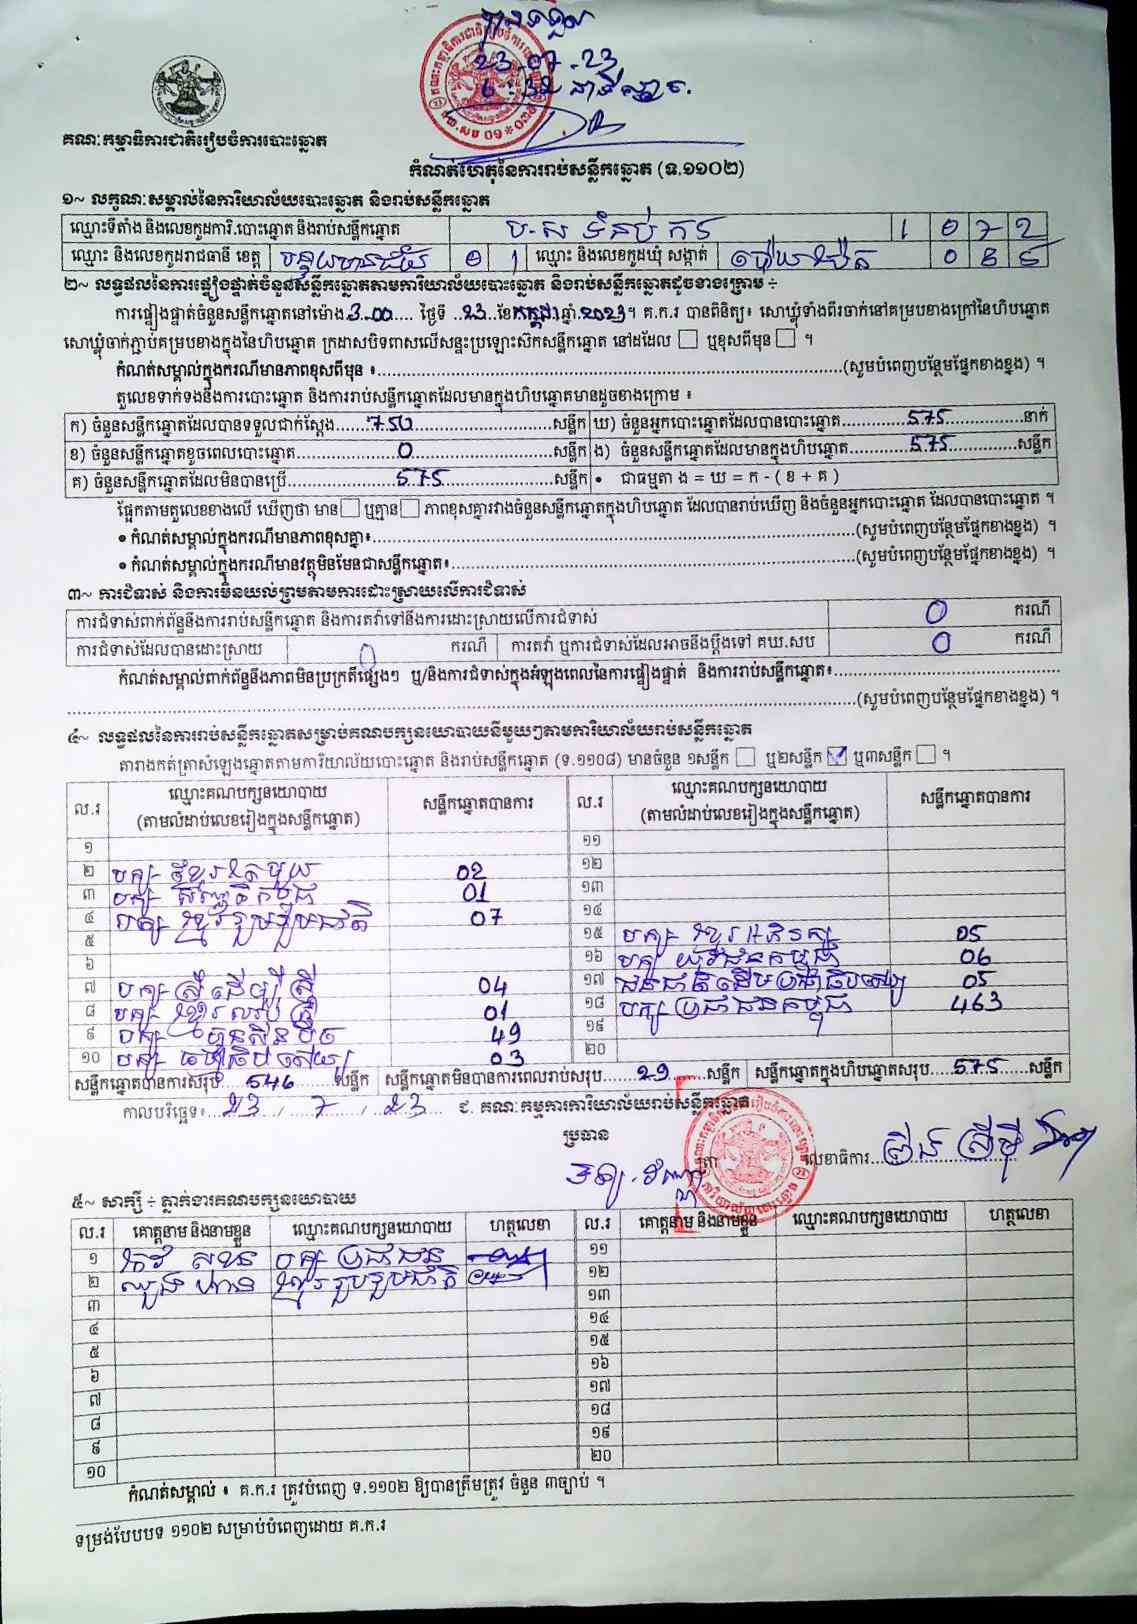 23.07.23
គណៈកម្មាធិការជាតិរៀបចំការបោះឆ្នោត
កំណត់ហេតុនៃការរាប់សន្លឹកឆ្នោត (ទ.១១០២)
១~ លក្ខណៈសម្គាល់នៃការិយាល័យបោះឆ្នោត និងរាប់សន្លឹកឆ្នោត
ឈ្មោះទីតាំង និងលេខកូដការិ.បោះឆ្នោត និងរាប់សន្លឹកឆ្នោត 1 0 7 2
ឈ្មោះ និងលេខកូដរាជធានី ខេត្ត បន្ទាយមានជ័យ 0 1 ឈ្មោះ និងលេខកូដឃុំ សង្កាត់ ប៉ោយប៉ែត
២~ លទ្ធផលនៃការផ្ទៀងផ្ទាត់ចំនួនសន្លឹកឆ្នោតតាមការិយាល័យបោះឆ្នោត និងរាប់សន្លឹកឆ្នោតដូចខាងក្រោម ÷
ការផ្ទៀងផ្ទាត់ចំនួនសន្លឹកឆ្នោតនៅម៉ោង 3.00 ថ្ងៃទី 23 ខែ កក្កដា ឆ្នាំ 2023។ គ.ក.រ បានពិនិត្យ៖ សោឃ្លុំទាំងពីរចាក់នៅគម្របខាងក្រៅនៃហិបឆ្នោត
សោឃ្លុំចាក់ភ្ជាប់គម្របខាងក្នុងនៃហិបឆ្នោត ក្រដាសបិទពាសលើសន្ទះប្រឡោះសិកសន្លឹកឆ្នោត នៅដដែល ☐ ឬខុសពីមុន ☐ ។
កំណត់សម្គាល់ក្នុងករណីមានភាពខុសពីមុន ៖ (សូមបំពេញបន្ថែមផ្នែកខាងខ្នង) ។
តួលេខទាក់ទងនឹងការបោះឆ្នោត និងការរាប់សន្លឹកឆ្នោតដែលមានក្នុងហិបឆ្នោតមានដូចខាងក្រោម ៖
ក) ចំនួនសន្លឹកឆ្នោតដែលបានទទួលជាក់ស្តែង 750 សន្លឹក ឃ) ចំនួនអ្នកបោះឆ្នោតដែលបានបោះឆ្នោត 575 នាក់
ខ) ចំនួនសន្លឹកឆ្នោតខូចពេលបោះឆ្នោត 0 សន្លឹក ង) ចំនួនសន្លឹកឆ្នោតដែលមានក្នុងហិបឆ្នោត 575 សន្លឹក
គ) ចំនួនសន្លឹកឆ្នោតដែលមិនបានប្រើ 575 សន្លឹក • ជាធម្មតា ង = ឃ = ក - ( ខ + គ )
ផ្អែកតាមតួលេខខាងលើ ឃើញថា មាន ☐ ឬគ្មាន ☐ ភាពខុសគ្នារវាងចំនួនសន្លឹកឆ្នោតក្នុងហិបឆ្នោត ដែលបានរាប់ឃើញ និងចំនួនអ្នកបោះឆ្នោត ដែលបានបោះឆ្នោត ។
• កំណត់សម្គាល់ក្នុងករណីមានភាពខុសគ្នា៖ (សូមបំពេញបន្ថែមផ្នែកខាងខ្នង) ។
• កំណត់សម្គាល់ក្នុងករណីមានវត្ថុមិនមែនជាសន្លឹកឆ្នោត៖ (សូមបំពេញបន្ថែមផ្នែកខាងខ្នង) ។
៣~ ការជំទាស់ និងការមិនយល់ព្រមតាមការដោះស្រាយលើការជំទាស់
ការជំទាស់ពាក់ព័ន្ធនឹងការរាប់សន្លឹកឆ្នោត និងការតវ៉ាទៅនឹងការដោះស្រាយលើការជំទាស់ 0 ករណី
ការជំទាស់ដែលបានដោះស្រាយ 0 ករណី ការតវ៉ា ឬការជំទាស់ដែលអាចនឹងប្តឹងទៅ គឃ.សប 0 ករណី
កំណត់សម្គាល់ពាក់ព័ន្ធនឹងភាពមិនប្រក្រតីផ្សេងៗ ឬ/និងការជំទាស់ក្នុងអំឡុងពេលនៃការផ្ទៀងផ្ទាត់ និងការរាប់សន្លឹកឆ្នោត៖
(សូមបំពេញបន្ថែមផ្នែកខាងខ្នង) ។
៤~ លទ្ធផលនៃការរាប់សន្លឹកឆ្នោតសម្រាប់គណបក្សនយោបាយនីមួយៗតាមការិយាល័យរាប់សន្លឹកឆ្នោត
តារាងកត់ត្រាសំឡេងឆ្នោតតាមការិយាល័យបោះឆ្នោត និងរាប់សន្លឹកឆ្នោត (ទ.១១០៨) មានចំនួន ១សន្លឹក ☐ ឬ២សន្លឹក ☑ ឬ៣សន្លឹក ☐ ។
ល.រ ឈ្មោះគណបក្សនយោបាយ (តាមលំដាប់លេខរៀងក្នុងសន្លឹកឆ្នោត) សន្លឹកឆ្នោតបានការ ល.រ ឈ្មោះគណបក្សនយោបាយ (តាមលំដាប់លេខរៀងក្នុងសន្លឹកឆ្នោត) សន្លឹកឆ្នោតបានការ
១ ១១
២ បក្ស ខ្មែរតែមួយ 02 ១២
៣ 01 ១៣
៤ បក្ស ខ្មែររួបរួមជាតិ 07 ១៤
៥ ១៥ បក្ស ខ្មែរអភិរក្ស 05
៦ ១៦ បក្ស យុវជនកម្ពុជា 06
៧ បក្ស ស្រីដើម្បីស្រី 04 ១៧ ជនជាតិដើមប្រជាធិបតេយ្យ 05
៨ 01 ១៨ បក្ស ប្រជាជនកម្ពុជា 463
៩ បក្ស ហ៊្វុនស៊ិនប៉ិច 49 ១៩
១០ 03 ២០
សន្លឹកឆ្នោតបានការសរុប 546 សន្លឹក សន្លឹកឆ្នោតមិនបានការពេលរាប់សរុប 29 សន្លឹក សន្លឹកឆ្នោតក្នុងហិបឆ្នោតសរុប 575 សន្លឹក
កាលបរិច្ឆេទ៖ 23 / 7 / 23 ជ. គណៈកម្មការការិយាល័យរាប់សន្លឹកឆ្នោត
ប្រធាន
លេខាធិការ
៥~ សាក្សី ÷ ភ្នាក់ងារគណបក្សនយោបាយ
ល.រ គោត្តនាម និងនាមខ្លួន ឈ្មោះគណបក្សនយោបាយ ហត្ថលេខា ល.រ គោត្តនាម និងនាមខ្លួន ឈ្មោះគណបក្សនយោបាយ ហត្ថលេខា
១ បក្ស ប្រជាជន ១១
២ ខ្មែររួបរួមជាតិ ១២
៣ ១៣
៤ ១៤
៥ ១៥
៦ ១៦
៧ ១៧
៨ ១៨
៩ ១៩
១០ ២០
កំណត់សម្គាល់ ៖ គ.ក.រ ត្រូវបំពេញ ទ.១១០២ ឱ្យបានត្រឹមត្រូវ ចំនួន ៣ច្បាប់ ។
ទម្រង់បែបបទ ១១០២ សម្រាប់បំពេញដោយ គ.ក.រ